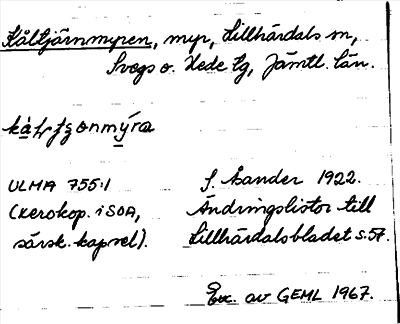 Kåltjärnmyren, myr, Lillhärdals sn,
Svegs o. Hede tg, Jämtl. län.
ULMA 755:1
(xerokop. i SOA,
särsk. kapsel).
J. Åsander 1922.
Ändringslistor till
Lillhärdalsbladet s. 57.
Exc. av GEML 1967.